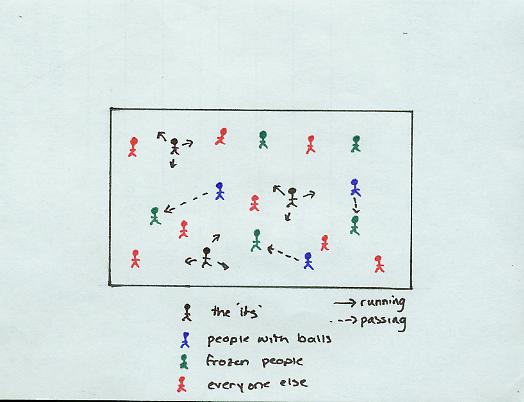 the 'its'
→ running
--→ passing
people with balls
frozen people
everyone else